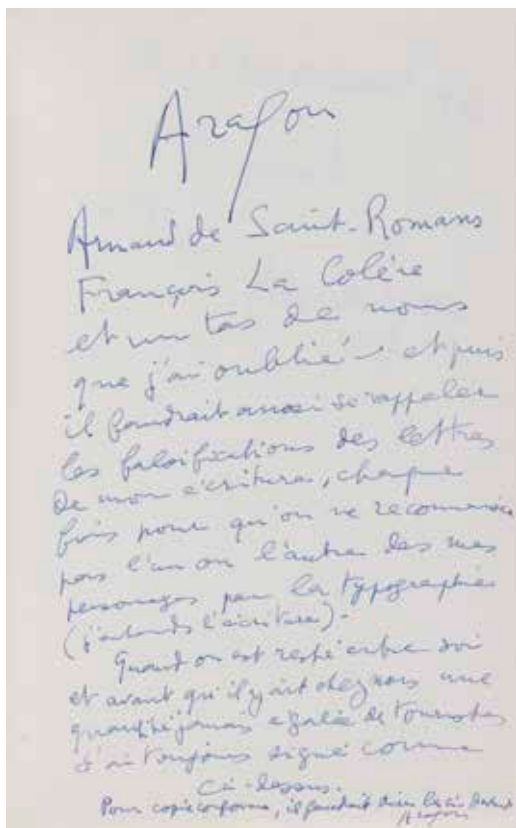 Aragon
Arnaud de Saint-Romans
François La Colère
et un tas de noms
que j'ai oubliés et puis
il faudrait aussi se rappeler
les falsifications des lettres
de mon écriture, chaque
fois pour qu'on ne reconnaisse
pas l'un ou l'autre des mes
personnages par la typographie
(j'entends l'écriture).
Quand on est resté entre soi
et avant qu'il y ait chez nous une
quantité jamais égalée de touristes
j'ai toujours signé comme
ci-dessus.
Pour copie conforme, il faudrait dire
Aragon